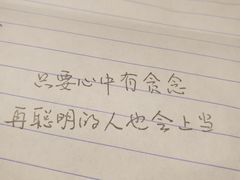 只要心中有贪念
再聪明的人也会上当